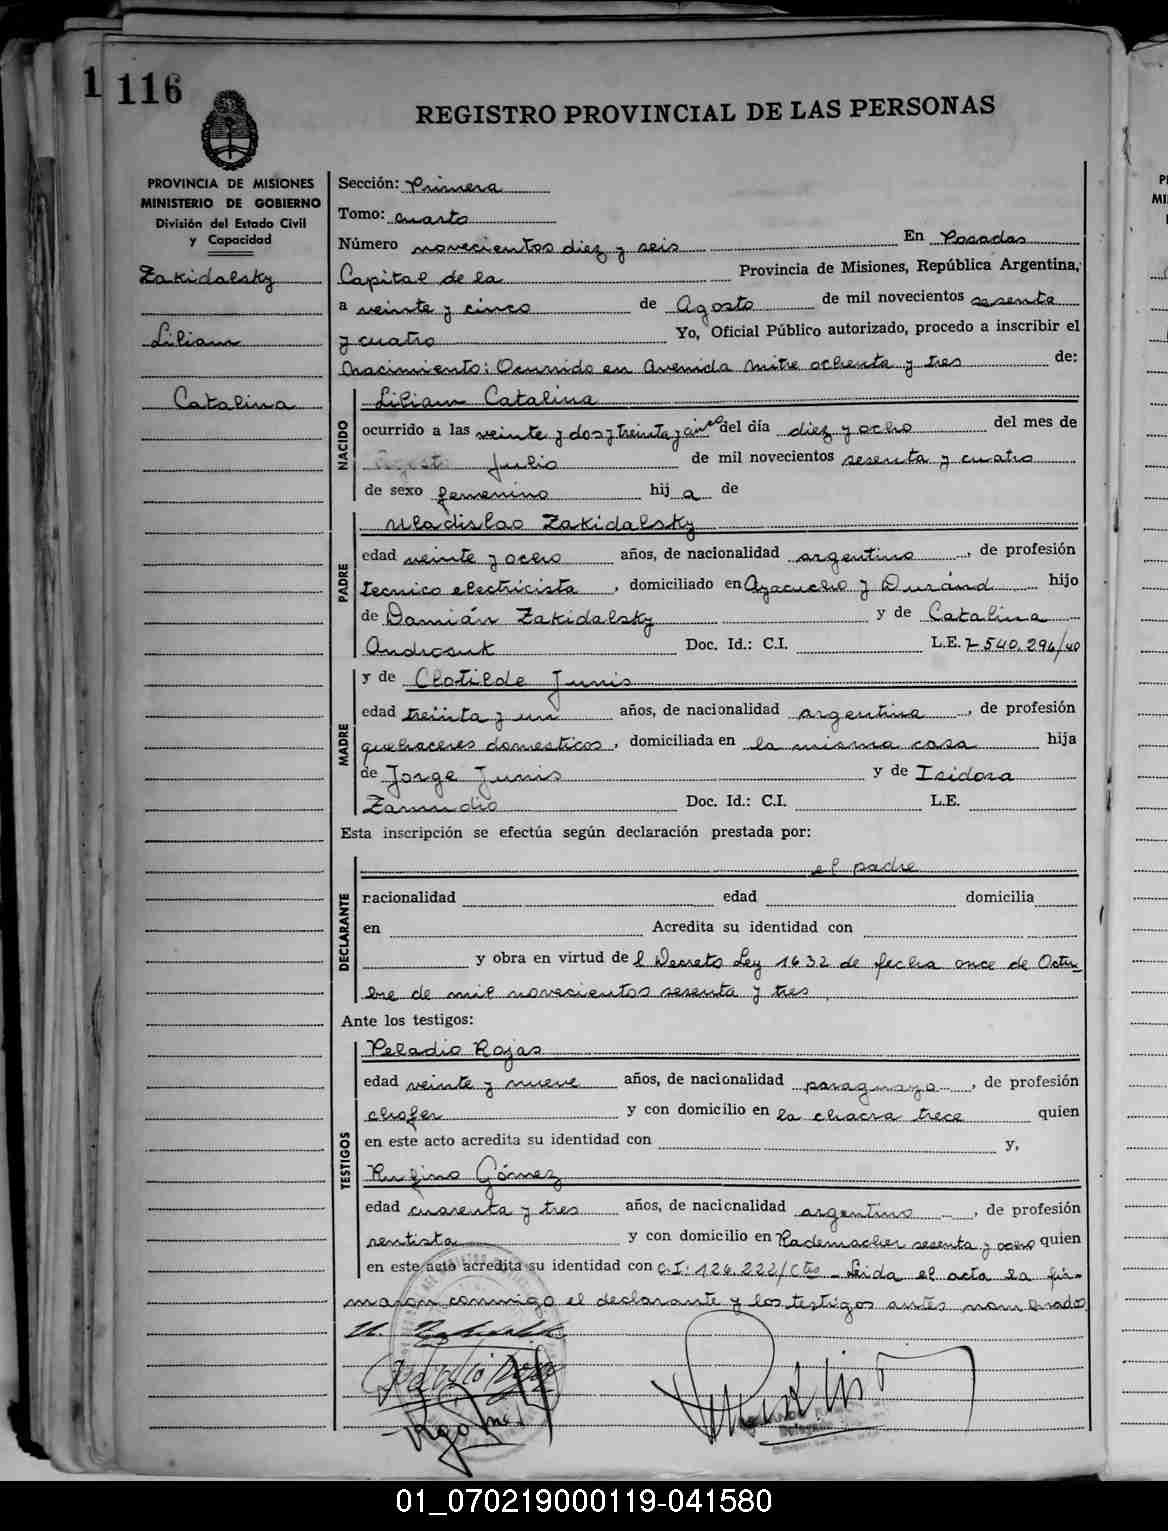 1 116
REGISTRO PROVINCIAL DE LAS PERSONAS
PROVINCIA DE MISIONES
MINISTERIO DE GOBIERNO
División del Estado Civil
y Capacidad
Zakidalsky
Lilian
Catalina
Sección: Primera
Tomo: cuarto
Número novecientos diez y seis En Posadas
Capital de la Provincia de Misiones, República Argentina,
a veinte y cinco de Agosto de mil novecientos sesenta
y cuatro Yo, Oficial Público autorizado, procedo a inscribir el
nacimiento: Ocurrido en Avenida Mitre ochenta y tres de:
NACIDO
Lilian Catalina
ocurrido a las veinte y dos y treinta y cinco del día diez y ocho del mes de
Agosto Julio de mil novecientos sesenta y cuatro
de sexo femenino hij a de
PADRE
Uladislao Zakidalsky
edad veinte y ocho años, de nacionalidad argentino, de profesión
tecnico electricista, domiciliado en Ayacucho y Duránd hijo
de Damián Zakidalsky y de Catalina
Androsuk Doc. Id.: C.I. L.E. 7.540.294/40
MADRE
y de Clotilde Junis
edad treinta y un años, de nacionalidad argentina, de profesión
quehaceres domesticos, domiciliada en la misma casa hija
de Jorge Junis y de Isidora
Zamudio Doc. Id.: C.I. L.E.
Esta inscripción se efectúa según declaración prestada por:
DECLARANTE
el padre
nacionalidad edad domicilia
en Acredita su identidad con
y obra en virtud de l Decreto Ley 1632 de fecha once de Octu-
bre de mil novecientos sesenta y tres
Ante los testigos:
TESTIGOS
Peladio Rojas
edad veinte y nueve años, de nacionalidad paraguayo, de profesión
chofer y con domicilio en la chacra trece quien
en este acto acredita su identidad con y,
Rufino Gómez
edad cuarenta y tres años, de nacionalidad argentino, de profesión
rentista y con domicilio en Rademacher sesenta y ocho quien
en este acto acredita su identidad con C.I: 126.222/Ctes - Leida el acta la fir-
maron conmigo el declarante y los testigos antes nombrados
01_070219000119-041580